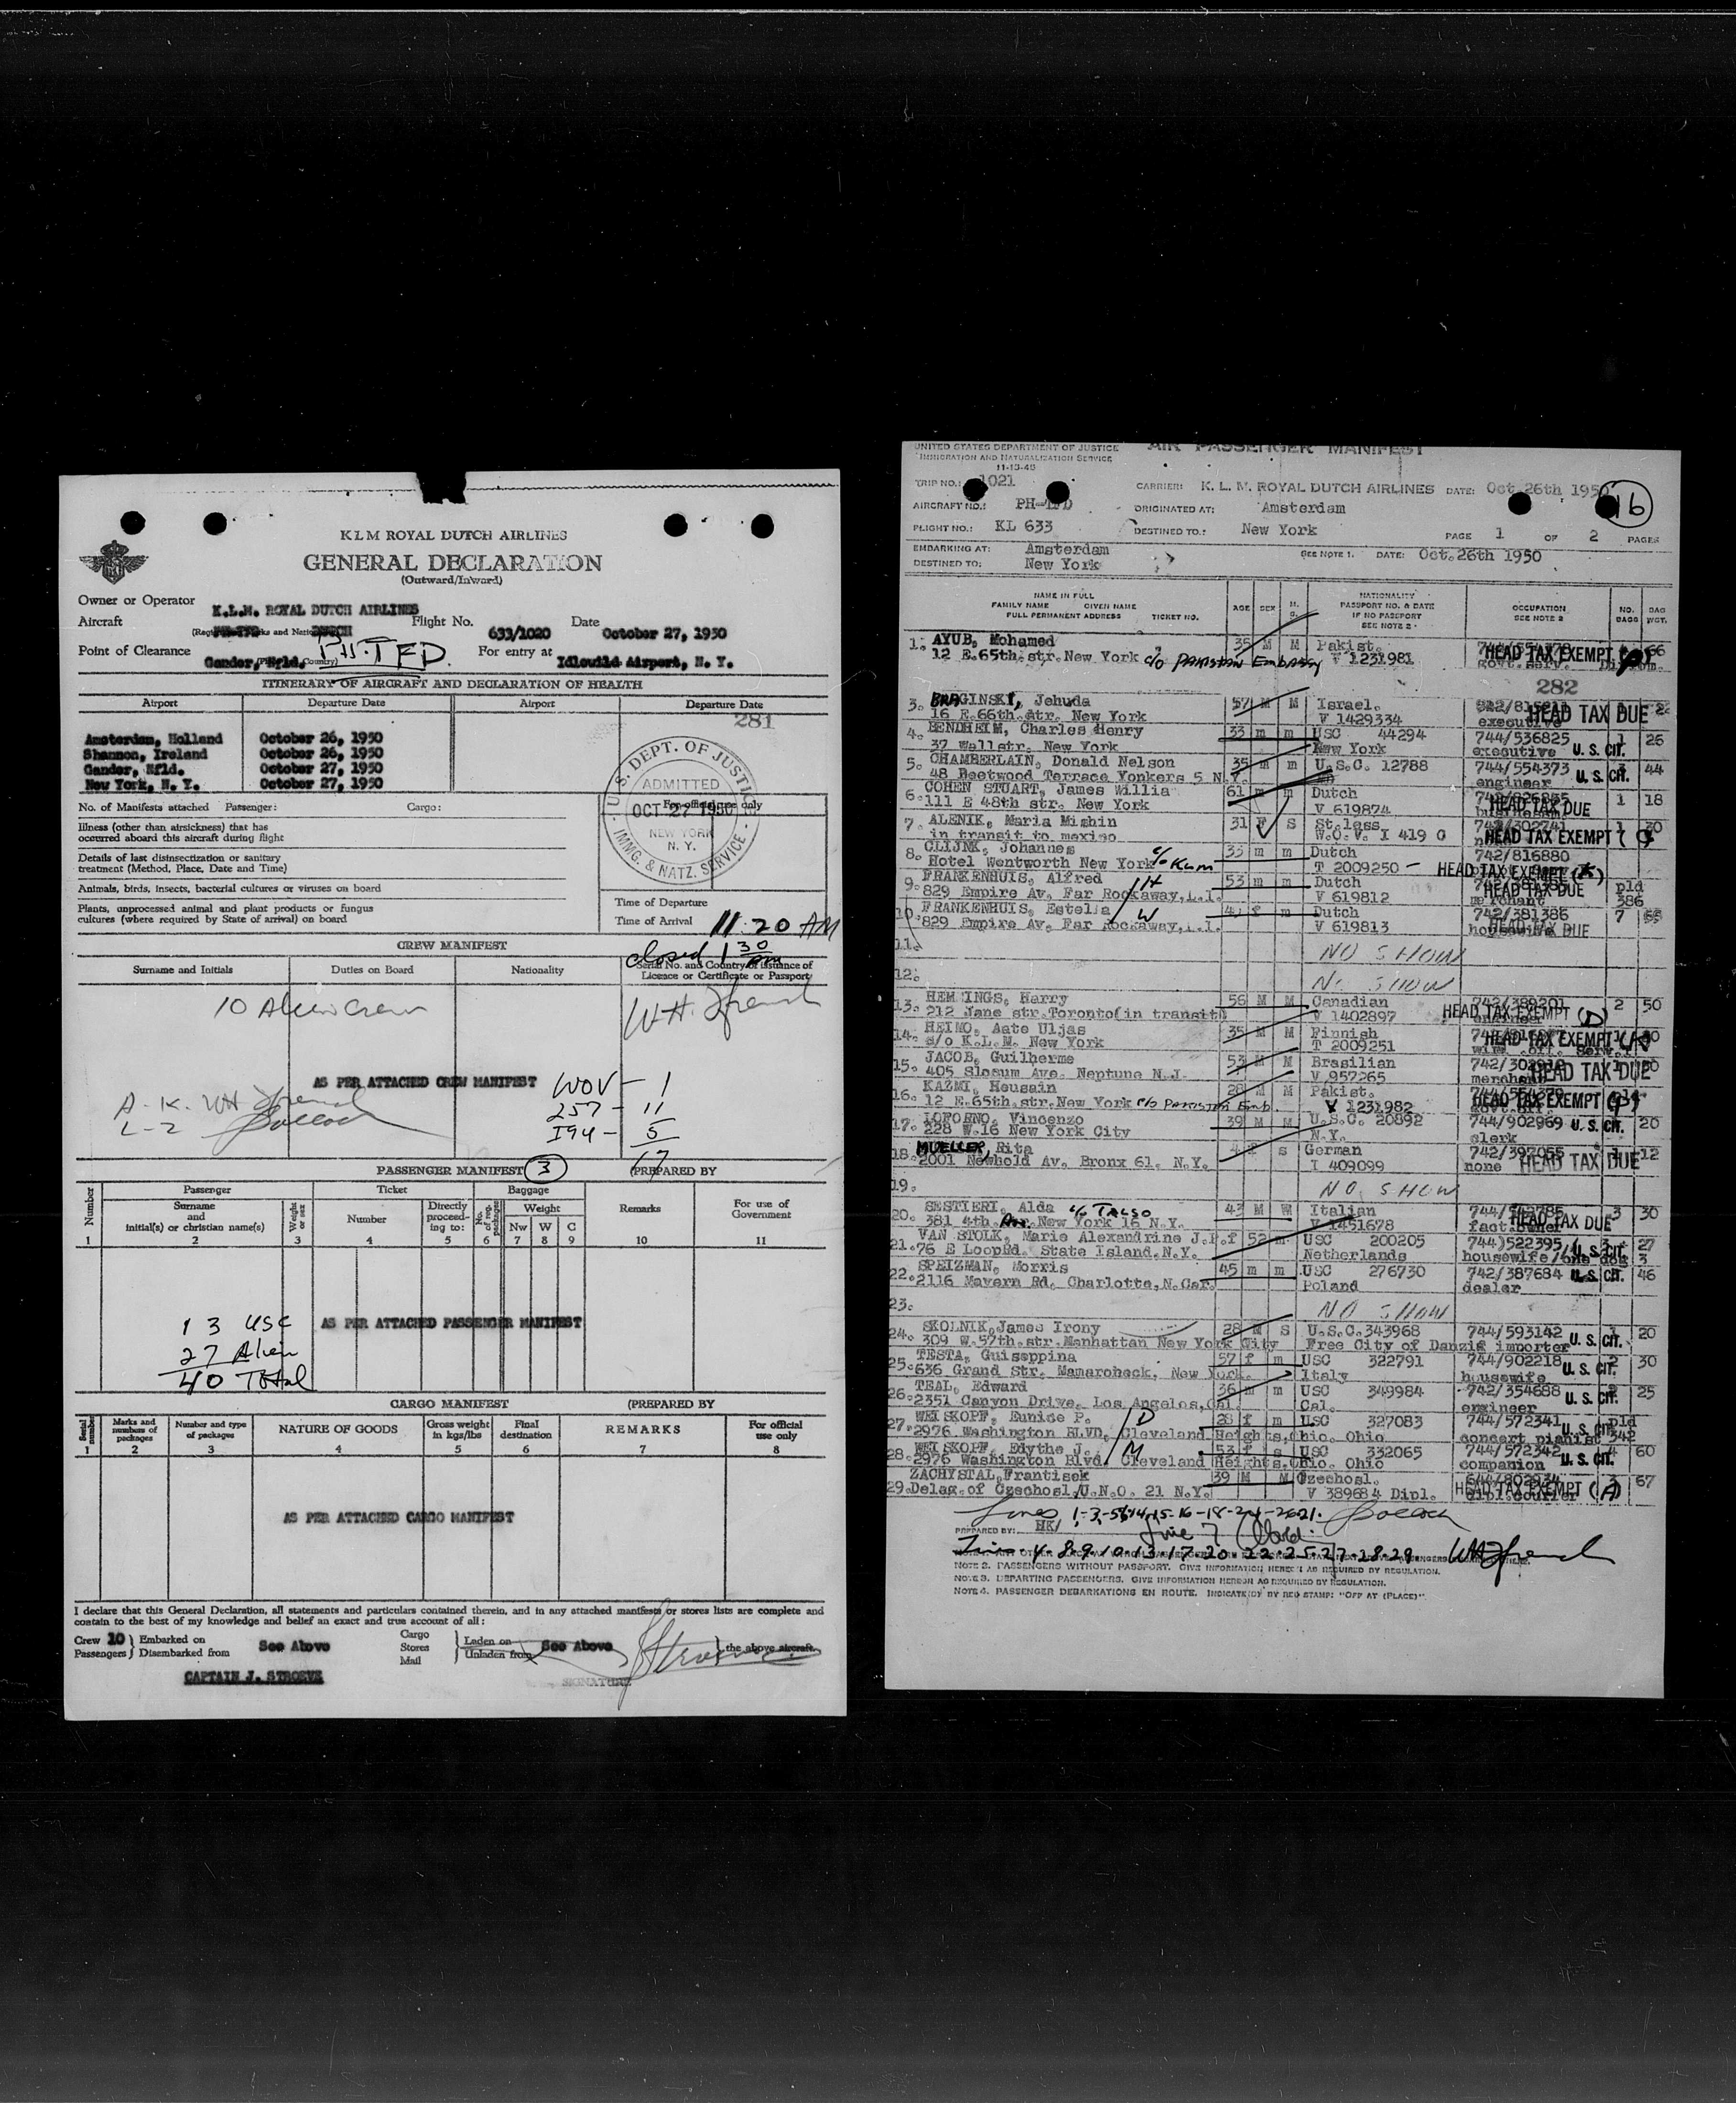 KLM ROYAL DUTCH AIRLINES
GENERAL DECLARATION
(Outward/Inward)
Owner or Operator K.L.M. ROYAL DUTCH AIRLINES
Aircraft DUTCH Flight No. 633/1020 Date October 27, 1950
PH-TFD
Point of Clearance Gander, Nfld. For entry at Idlewild Airport, N. Y.
ITINERARY OF AIRCRAFT AND DECLARATION OF HEALTH
Airport Departure Date Airport Departure Date
281
Amsterdam, Holland October 26, 1950
Shannon, Ireland October 26, 1950
Gander, Nfld. October 27, 1950
New York, N. Y. October 27, 1950
U. S. DEPT. OF JUSTICE
ADMITTED
OCT 27 1950
NEW YORK
N. Y.
IMMG. & NATZ. SERVICE
No. of Manifests attached Passenger: Cargo: For official use only
Illness (other than airsickness) that has
occurred aboard this aircraft during flight
Details of last disinsectization or sanitary
treatment (Method, Place, Date and Time)
Animals, birds, insects, bacterial cultures or viruses on board
Plants, unprocessed animal and plant products or fungus
cultures (where required by State of arrival) on board
Time of Departure
Time of Arrival 11 20 AM
closed 1 30 pm
CREW MANIFEST
Surname and Initials Duties on Board Nationality Serial No. and Country of issuance of
Licence or Certificate or Passport
10 Alien Crew
AS PER ATTACHED CREW MANIFEST
WOV - 1
257 - 11
I94 - 5
17
PASSENGER MANIFEST 3 (PREPARED BY
Number Passenger Ticket Baggage Remarks For use of
Government
Surname
and
initial(s) or christian name(s) Weight or sex Number Directly
proceed-
ing to: No. of reg. packages Weight
Nw W C
1 2 3 4 5 6 7 8 9 10 11
AS PER ATTACHED PASSENGER MANIFEST
13 USC
27 Alien
40 Total
CARGO MANIFEST (PREPARED BY
Serial number Marks and
numbers of
packages Number and type
of packages NATURE OF GOODS Gross weight
in kgs/lbs Final
destination REMARKS For official
use only
1 2 3 4 5 6 7 8
AS PER ATTACHED CARGO MANIFEST
I declare that this General Declaration, all statements and particulars contained therein, and in any attached manifests or stores lists are complete and
contain to the best of my knowledge and belief an exact and true account of all:
Crew 10 Embarked on See Above Cargo Laden on See Above the above aircraft.
Passengers Disembarked from Stores Unladen from
Mail
CAPTAIN J. STROEVE SIGNATURE
UNITED STATES DEPARTMENT OF JUSTICE AIR PASSENGER MANIFEST
IMMIGRATION AND NATURALIZATION SERVICE
11-13-46
TRIP NO.: 1021 CARRIER: K. L. M. ROYAL DUTCH AIRLINES DATE: Oct 26th 1950 16
AIRCRAFT NO.: PH-TFD ORIGINATED AT: Amsterdam
FLIGHT NO.: KL 633 DESTINED TO.: New York PAGE 1 OF 2 PAGES
EMBARKING AT: Amsterdam SEE NOTE 1. DATE: Oct.26th 1950
DESTINED TO; New York
NAME IN FULL
FAMILY NAME GIVEN NAME
FULL PERMANENT ADDRESS TICKET NO. AGE SEX M. S. NATIONALITY
PASSPORT NO. & DATE
IF NO PASSPORT
SEE NOTE 2 OCCUPATION
SEE NOTE 2 NO. BAGS BAG WGT.
1. AYUB, Mohamed 35 M M Pakist. 66
12 E.65th.str.New York c/o PAKISTAN Embassy V 1231981 govt.serv. HEAD TAX EXEMPT
282
3. BRAGINSKI, Jehuda 57 M M Israel.
16 E.66th.Str. New York V 1429334 executive HEAD TAX DUE
4. BENDHEIM, Charles Henry 33 m m USC 44294 744/536825 1 26
37 Wallstr. New York New York executive U. S. CIT.
5. CHAMBERLAIN, Donald Nelson 35 m m U.S.C. 12788 744/554373 44
48 Beetwood Terrace Yonkers 5 N.Y. engineer U. S. CIT.
6. COHEN STUART, James Willia 61 m m Dutch 1 18
111 E 48th str. New York V 619874 HEAD TAX DUE
7. ALENIK, Maria Mishin 31 F S St.less 742/302741
in transit to mexiso W.O.V. I 419 G HEAD TAX EXEMPT
8. CLIJNK, Johannes 35 m m Dutch 742/816880
Hotel Wentworth New York c/o KLM T 2009250 HEAD TAX EXEMPT
9. FRANKENHUIS, Alfred H 53 m m Dutch HEAD TAX DUE pld
829 Empire Av. Far Rockaway,L.I. V 619812 merchant 386
10. FRANKENHUIS, Estella W f m Dutch 742/381386 7
829 Empire Av. Far Rockaway,L.I. V 619813 housewife HEAD TAX DUE
11. NO SHOW
12. NO SHOW
13. HEMMINGS, Harry 56 M M Canadian 742/389201 2 50
212 Jane str.Toronto(in transit) V 1402897 HEAD TAX EXEMPT (D)
14. HEIMO, Aate Uljas 35 M M Finnish
s/o K.L.M. New York T 2009251 HEAD TAX EXEMPT
15. JACOB, Guilherme 53 M M Brasilian
405 Slosum Ave. Neptune N.J. V 957265 merchant HEAD TAX DUE
16. KAZMI, Housain 28 M Pakist.
12 E.65th.str.New York c/o PAKISTAN Emb. V 1231982 HEAD TAX EXEMPT
17. LOFORNO, Vincenzo 39 M M U.S.C. 20892 744/902969 U. S. CIT. 20
228 W.16 New York City N.Y. clerk
18. MUELLER, Rita s German 742/397055 12
2001 Newbold Av. Bronx 61. N.Y. I 409099 none HEAD TAX DUE
19. NO SHOW
20. SESTIERI, Alda c/o TALSO 43 M W Italian 3 30
381 4th Av. New York 16 N.Y. V 1451678 fact.owner HEAD TAX DUE
21. VAN STOLK, Marie Alexandrine J.P. f 52 m USC 200205 744)522395 27
76 E LoopRd. State Island.N.Y. Netherlands housewife/one dog 3 U. S. CIT.
22. SPEIZMAN, Morris 45 m m USC 276730 742/387684 U. S. CIT. 46
2116 Mavern Rd. Charlotte,N.Car. Poland dealer
23. NO SHOW
24. SKOLNIK,James Irony 28 M S U.S.C.343968 744/593142 U. S. CIT. 20
309 W.57th.str.Manhattan New York City Free City of Danzig importer
25. TESTA, Guiseppina 57 f m USC 322791 744/902218 U. S. CIT. 30
636 Grand Str. Mamaroneck, New York. Italy housewife
26. TEAL, Edward 36 m m USC 349984 742/354688 U. S. CIT. 25
2351 Canyon Drive. Los Angelos,Cal. Cal. engineer
27. WEISKOPF, Eunice P. D 28 f m USC 327083 744/572341 U. S. CIT. pld
2976 Washington BLVD. Cleveland Heights.Ohio. Ohio concert pianist 342
28. WEISKOPF, Edythe J. M 53 f s USC 332065 744/572342 4 60
2976 Washington Blvd. Cleveland Heights.Ohio. Ohio companion U. S. CIT.
29. ZACHYSTAL,Frantisek 39 M M Czechosl. 3 67
Delag.of Czechosl/U.N.O. 21 N.Y. V 389684 Dipl. dipl.courier HEAD TAX EXEMPT (A)
PREPARED BY: HK/
NOTE 2. PASSENGERS WITHOUT PASSPORT. GIVE INFORMATION HEREON AS REQUIRED BY REGULATION.
NOTE 3. DEPARTING PASSENGERS. GIVE INFORMATION HEREON AS REQUIRED BY REGULATION.
NOTE 4. PASSENGER DEBARKATIONS EN ROUTE. INDICATE BY RED STAMP: "OFF AT (PLACE)"